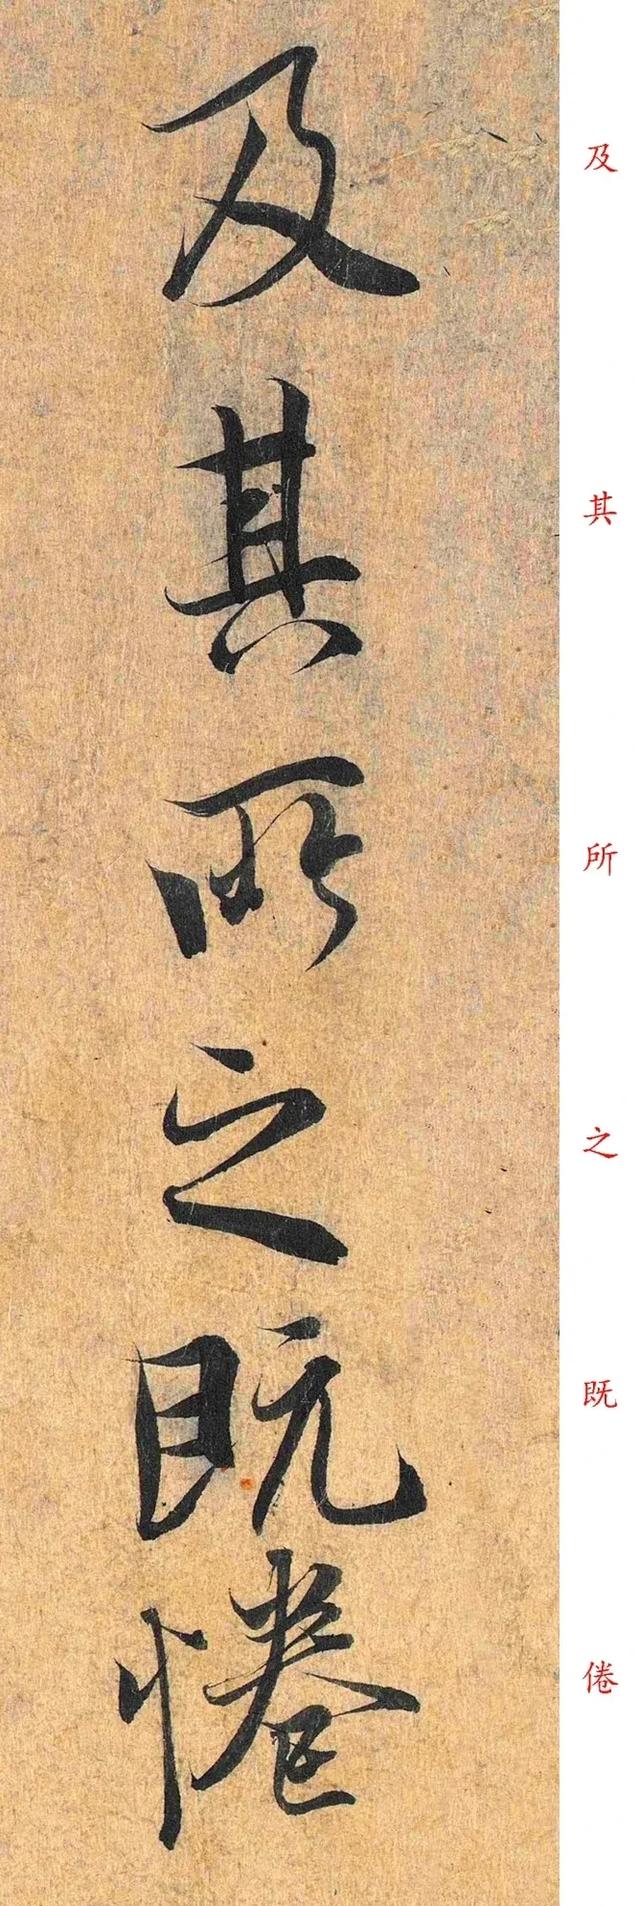 及其所之既惓
及
其
所
之
既
倦